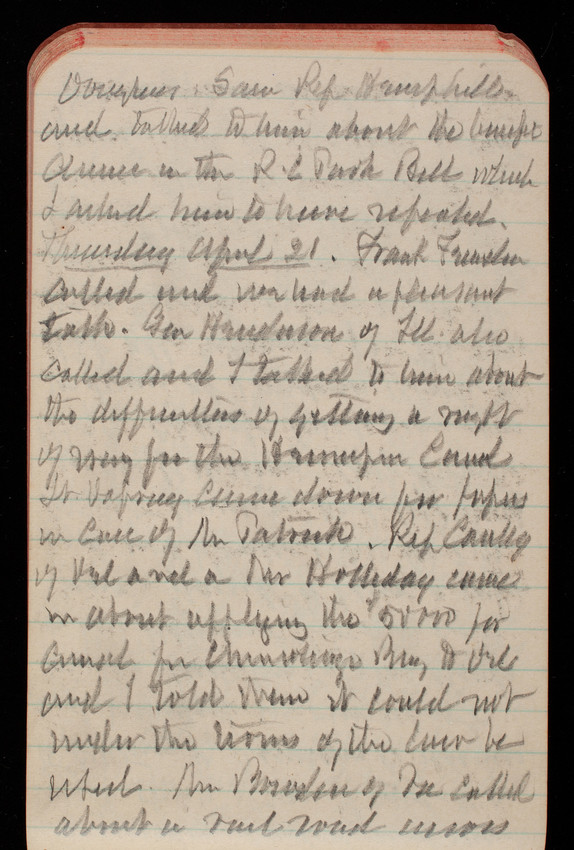 Saw Rep Hemphill
and talked to him about the
clause in the R. C Park Bill which
I asked him to have repealed.
Thursday April 21. Frank
called and we had a pleasant
talk. Gen Henderson of Ill. also
called and I talked to him about
the difficulties of getting a right
of way for the Hennepin Canal
Lt came down for papers
in case of Mr Patrick. Rep Causey
of Del and a Mr Holliday came
in about applying the $50000 for
canal for Bay to Del
and I told them it could not
under the terms of the law be
used. Mr of called
about a rail road across